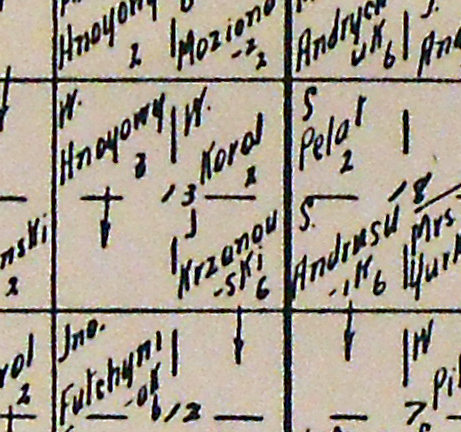 Hnoyowy
2
Moziono
-2
2
Andrych
uk 6
W.
Hnoyowy
3
W.
Korol
2
13
S
Pelat
2
18
nski
2
J
Krzanou
-ski
6
S.
Andrusu
-ik 6
Mrs
Yurk
rol
2
Jno.
Futchyni
-ok
6
12
W
Pil
7